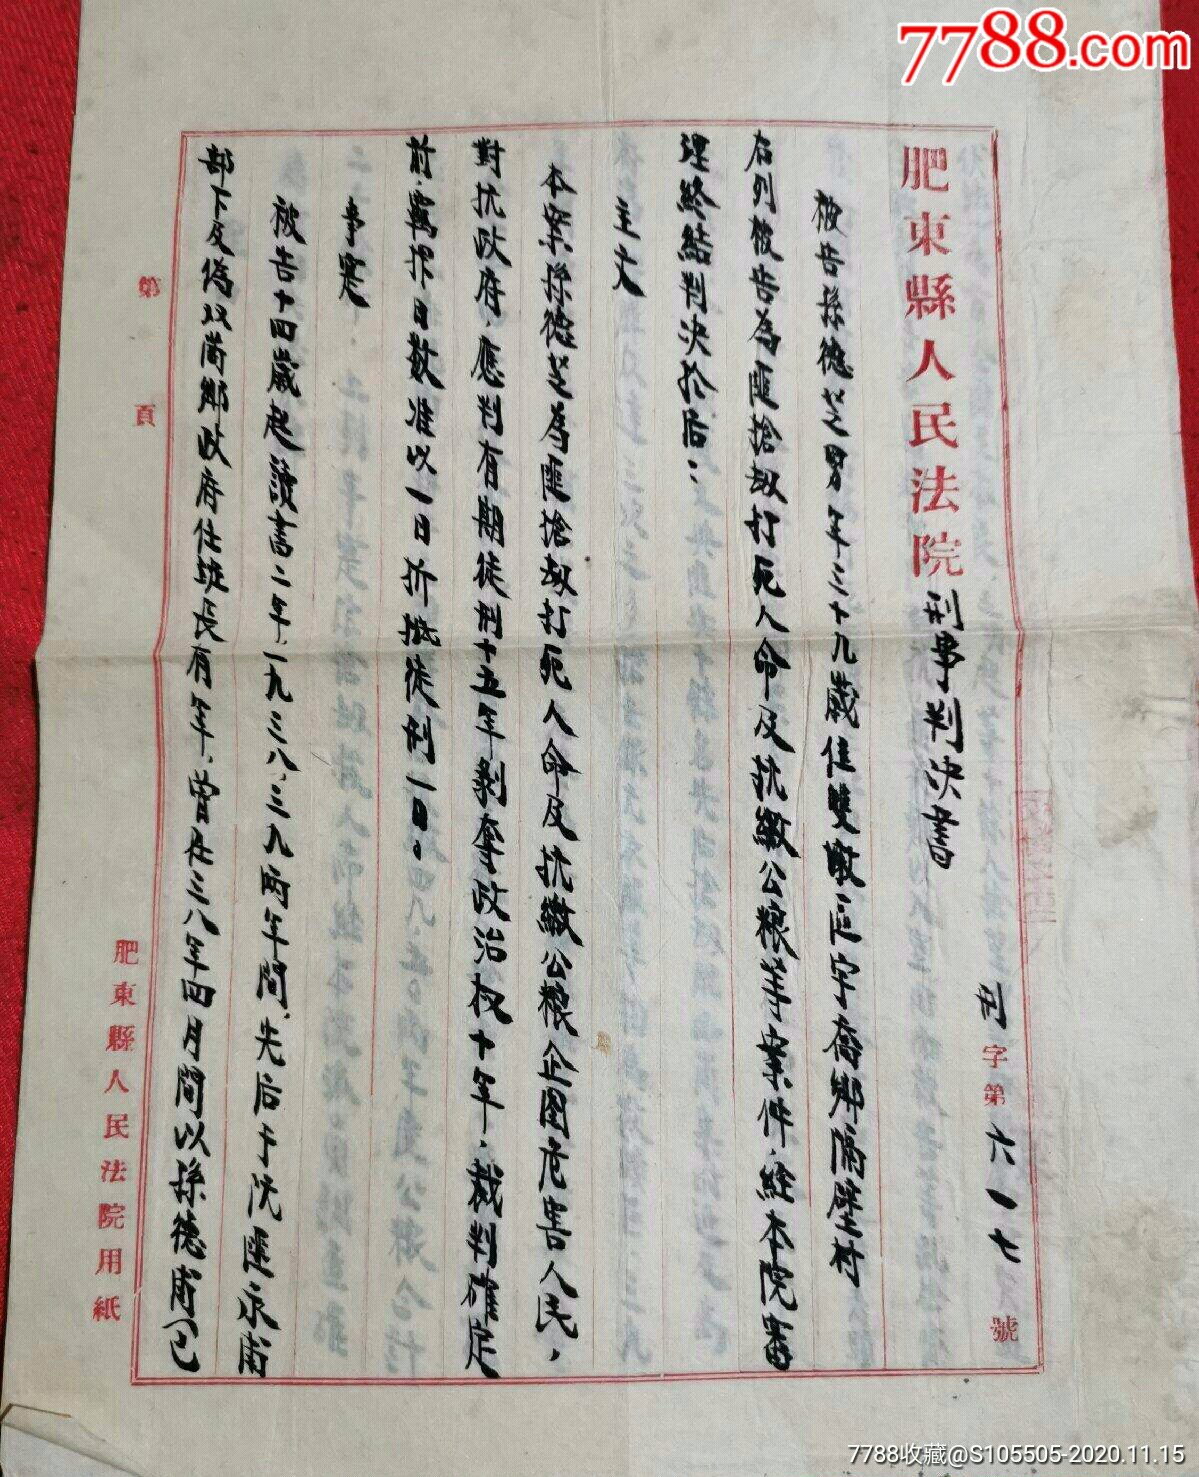 7788.com
肥東縣人民法院刑事判决書
刑字第六一七號
被告孫德芝男年三十九歲住雙墩區字喬鄉隔壁村
右列被告為匪搶劫打死人命及抗繳公粮等案件，經本院審
理終結判决於后：
主文
本案孫德芝為匪搶劫打死人命及抗繳公粮企图危害人民，
對抗政府，應判有期徒刑十五年剥奪政治权十年，裁判確定
前，羈押日数准以一日折抵徒刑一日。
事实
被告十四歲起讀書二年，一九三八，三九两年間，先后于沈匪永甫
部下及偽双崗鄉政府任班長有年，曾在三八年四月間以孫德甫（已
第 頁
肥東縣人民法院用紙
7788收藏@S105505-2020.11.15